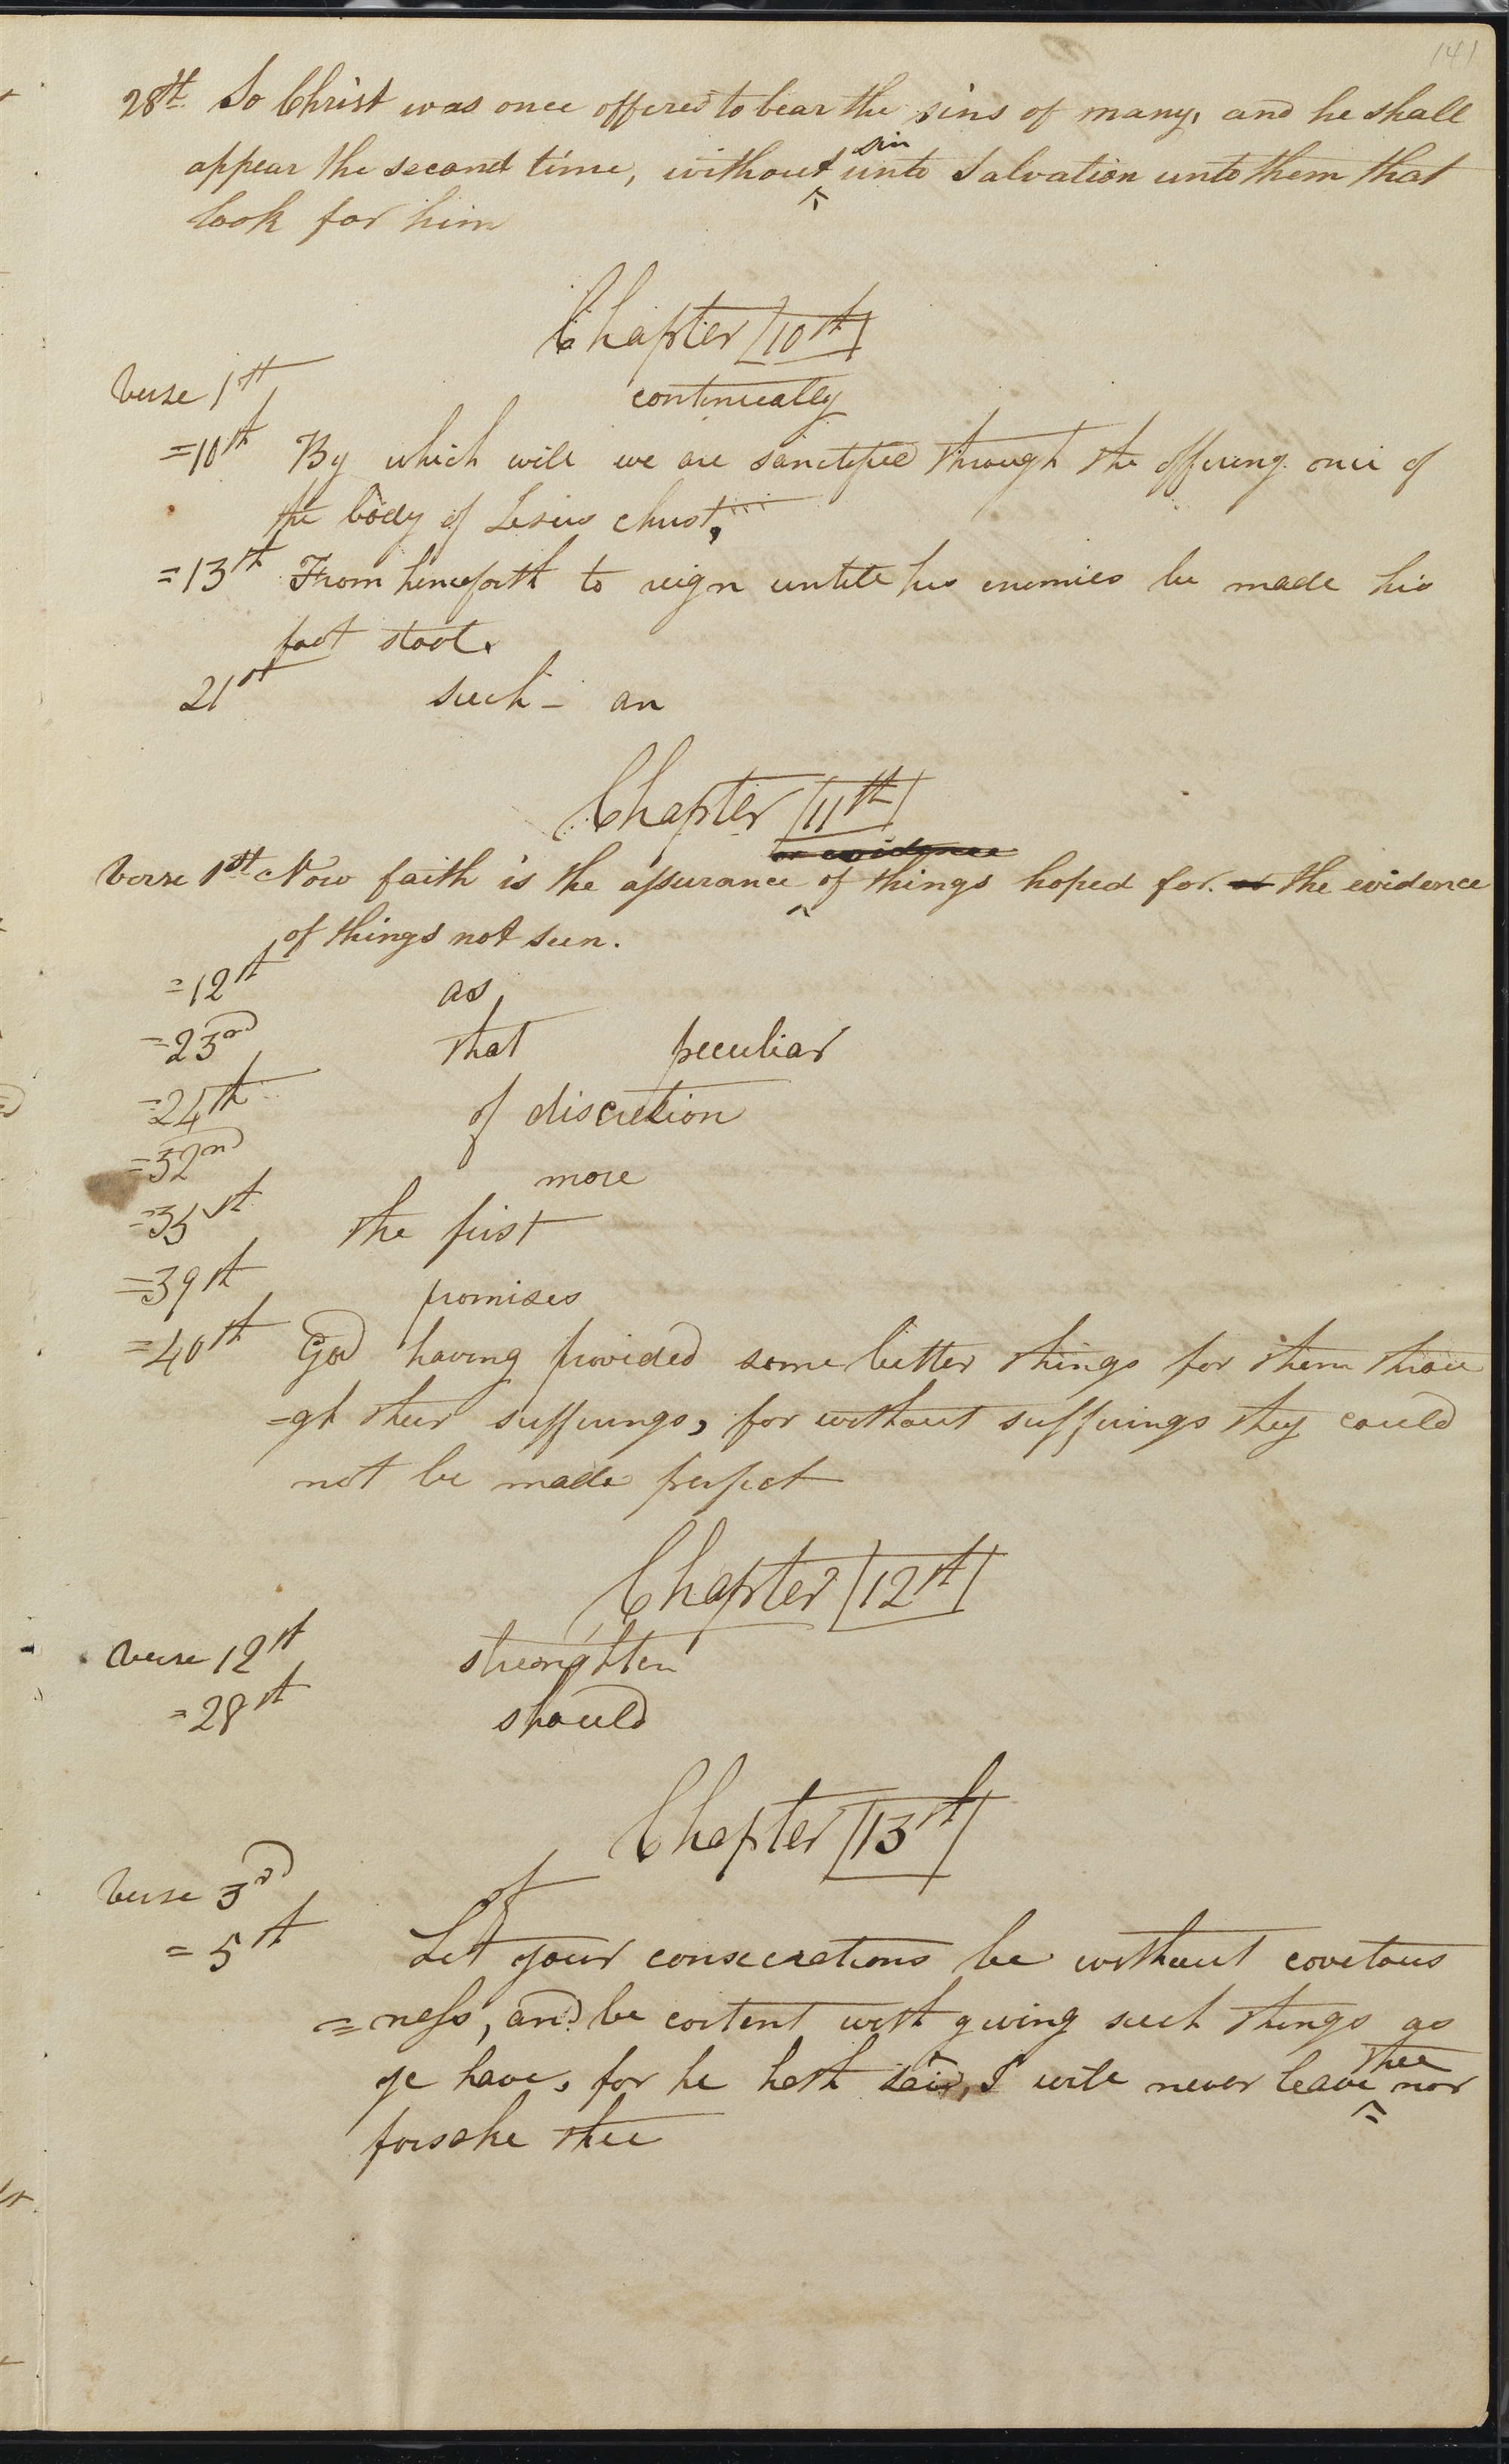 141
28th So Christ was once offered to bear the sins of many, and he shall
appear the second time, without sin unto Salvation unto them that
look for him
Chapter 10th
Verse 1st continually
=10th By which will we are sanctified through the offering once of
the body of Jesus christ,
=13th From henceforth to reign untill his enemies be made his
foot stool.
21st such - an
Chapter 11th
or evidence
Verse 1st Now faith is the assurance of things hoped for. or the evidence
of things not seen.
=12th as
=23rd that peculiar
=24th of discretion
=32nd more
=35th the first
=39th promises
=40th God having provided some better things for them throu
=gh their sufferings, for without sufferings they could
not be made perfect
Chapter 12th
Verse 12th
=28th should
Chapter 13th
Verse 3rd of
=5th Let your consecrations be without covetous
=ness, and be content with giving such things as
ye have, for he hath said, I will never leave thee nor
forsake thee